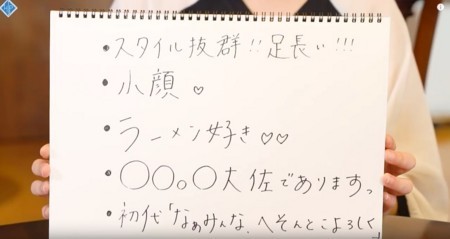 ・スタイル抜群!!足長い!!!
・小顔♡
・ラーメン好き♡♡
・〇〇。〇大佐でありますっ
・初代「なぁみんな、へそんとこよろしく」